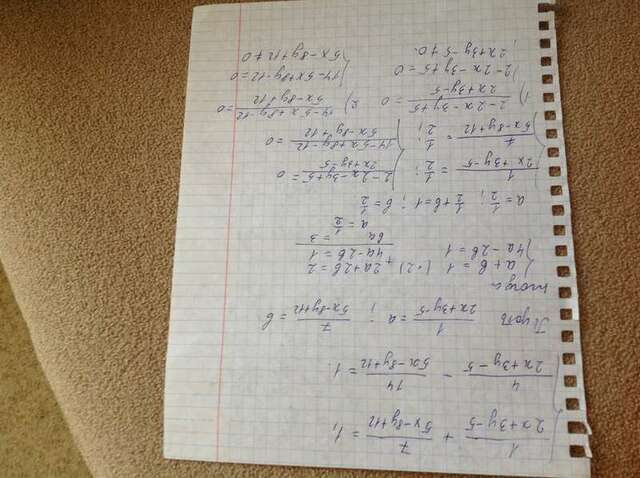 { 1/(2x+3y-5) + 7/(5x-8y+12) = 1;
4/(2x+3y-5) - 14/(5x-8y+12) = 1.
Пусть 1/(2x+3y-5) = a; 7/(5x-8y+12) = b
тогда
{ a+b=1 (·2) 2a+2b=2
4a-2b=1 + 4a-2b=1
6a = 3
a = 1/2
a = 1/2; 1/2+b=1; b = 1/2
{ 1/(2x+3y-5) = 1/2; { (2-2x-3y+5)/(2x+3y-5) = 0
7/(5x-8y+12) = 1/2; (14-5x+8y-12)/(5x-8y+12) = 0
1) (2-2x-3y+5)/(2x+3y-5) = 0 2) (14-5x+8y-12)/(5x-8y+12) = 0
{ 2-2x-3y+5=0 { 14-5x+8y-12=0
2x+3y-5≠0. 5x-8y+12≠0